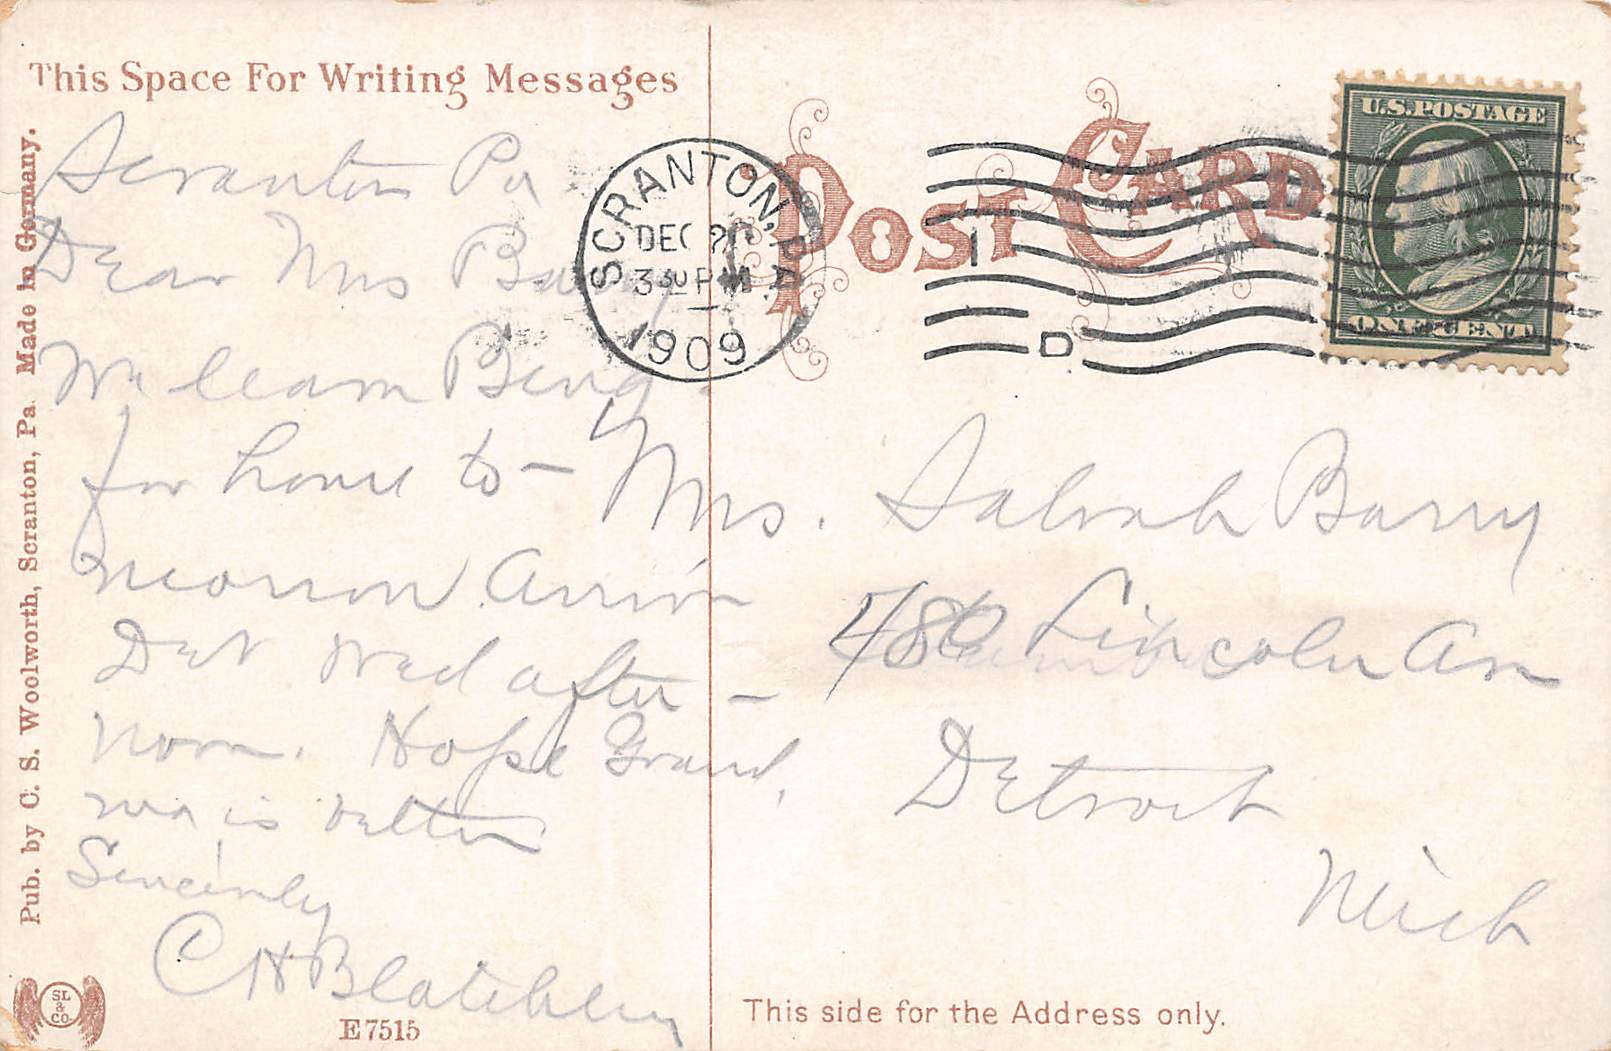 This Space For Writing Messages
Scranton Pa
Dear Mrs Barry
We leave Bing
for home to-
morrow. Arriv
Det Wed after-
noon. Hope Grand
ma is better
Sincerely
C H Blatchley
Pub. by C. S. Woolworth, Scranton, Pa. Made in Germany.
SL
&
CO.
E 7515
POST CARD
SCRANTON, PA.
DEC 20
330 PM
1909
1
D
U.S. POSTAGE
ONE CENT
Mrs. Salvah Barry
486 Lincoln Av
Detroit
Mich
This side for the Address only.